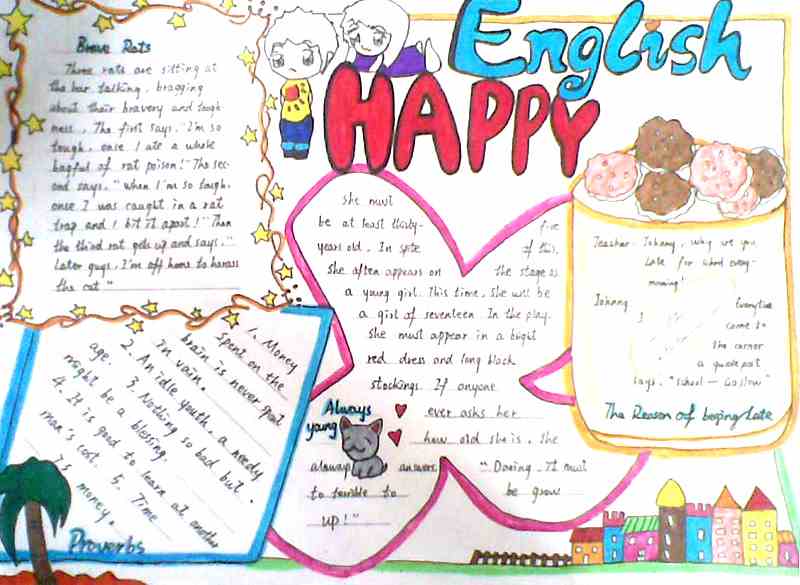 English
HAPPY
Brave Rats
Three rats are sitting at
the bar talking, bragging
about their bravery and tough-
ness. The first says, "I'm so
tough, once I ate a whole
bagful of rat poison!" The sec-
ond says, "When I'm so tough,
once I was caught in a rat
trap and I bit it apart!" Then
the third rat gets up and says, "
Later guys, I'm off home to harass
the cat"
She must
be at least thirty- five
years old. In spite of this,
She often appears on the stage as
a young girl. This time, She will be
a girl of seventeen. In the play.
She must appear in a bright
red dress and long black
stockings. If anyone
ever asks her
how old she is, She
always answers,
"Daring, It must
be grow
to terrible to
up!"
Always
young
Teacher: Johnny, why are you
late for school every-
morning?
Johnny
I
Everytime
come to
the corner
a post
says, "School — Go Slow"
The Reason of being Late
1. Money
spent on the
brain is never
in vain.
2. An idle youth, a needy
age.
3. Nothing so bad but
might be a blessing.
4. It is good to learn at another
man's cost.
5. Time
is money.
Proverbs